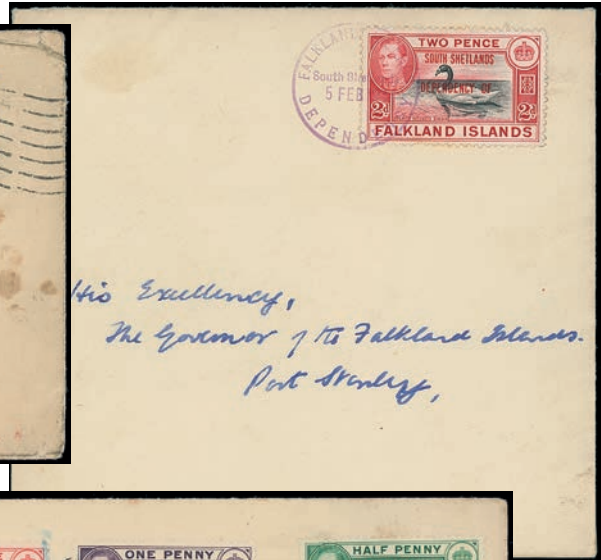 FALKLAND
South She
5 FEB
DEPEND
TWO PENCE
SOUTH SHETLANDS
DEPENDENCY OF
2d 2d
FALKLAND ISLANDS
His Excellency,
The Governor of the Falkland Islands.
Port Stanley,
ONE PENNY
HALF PENNY